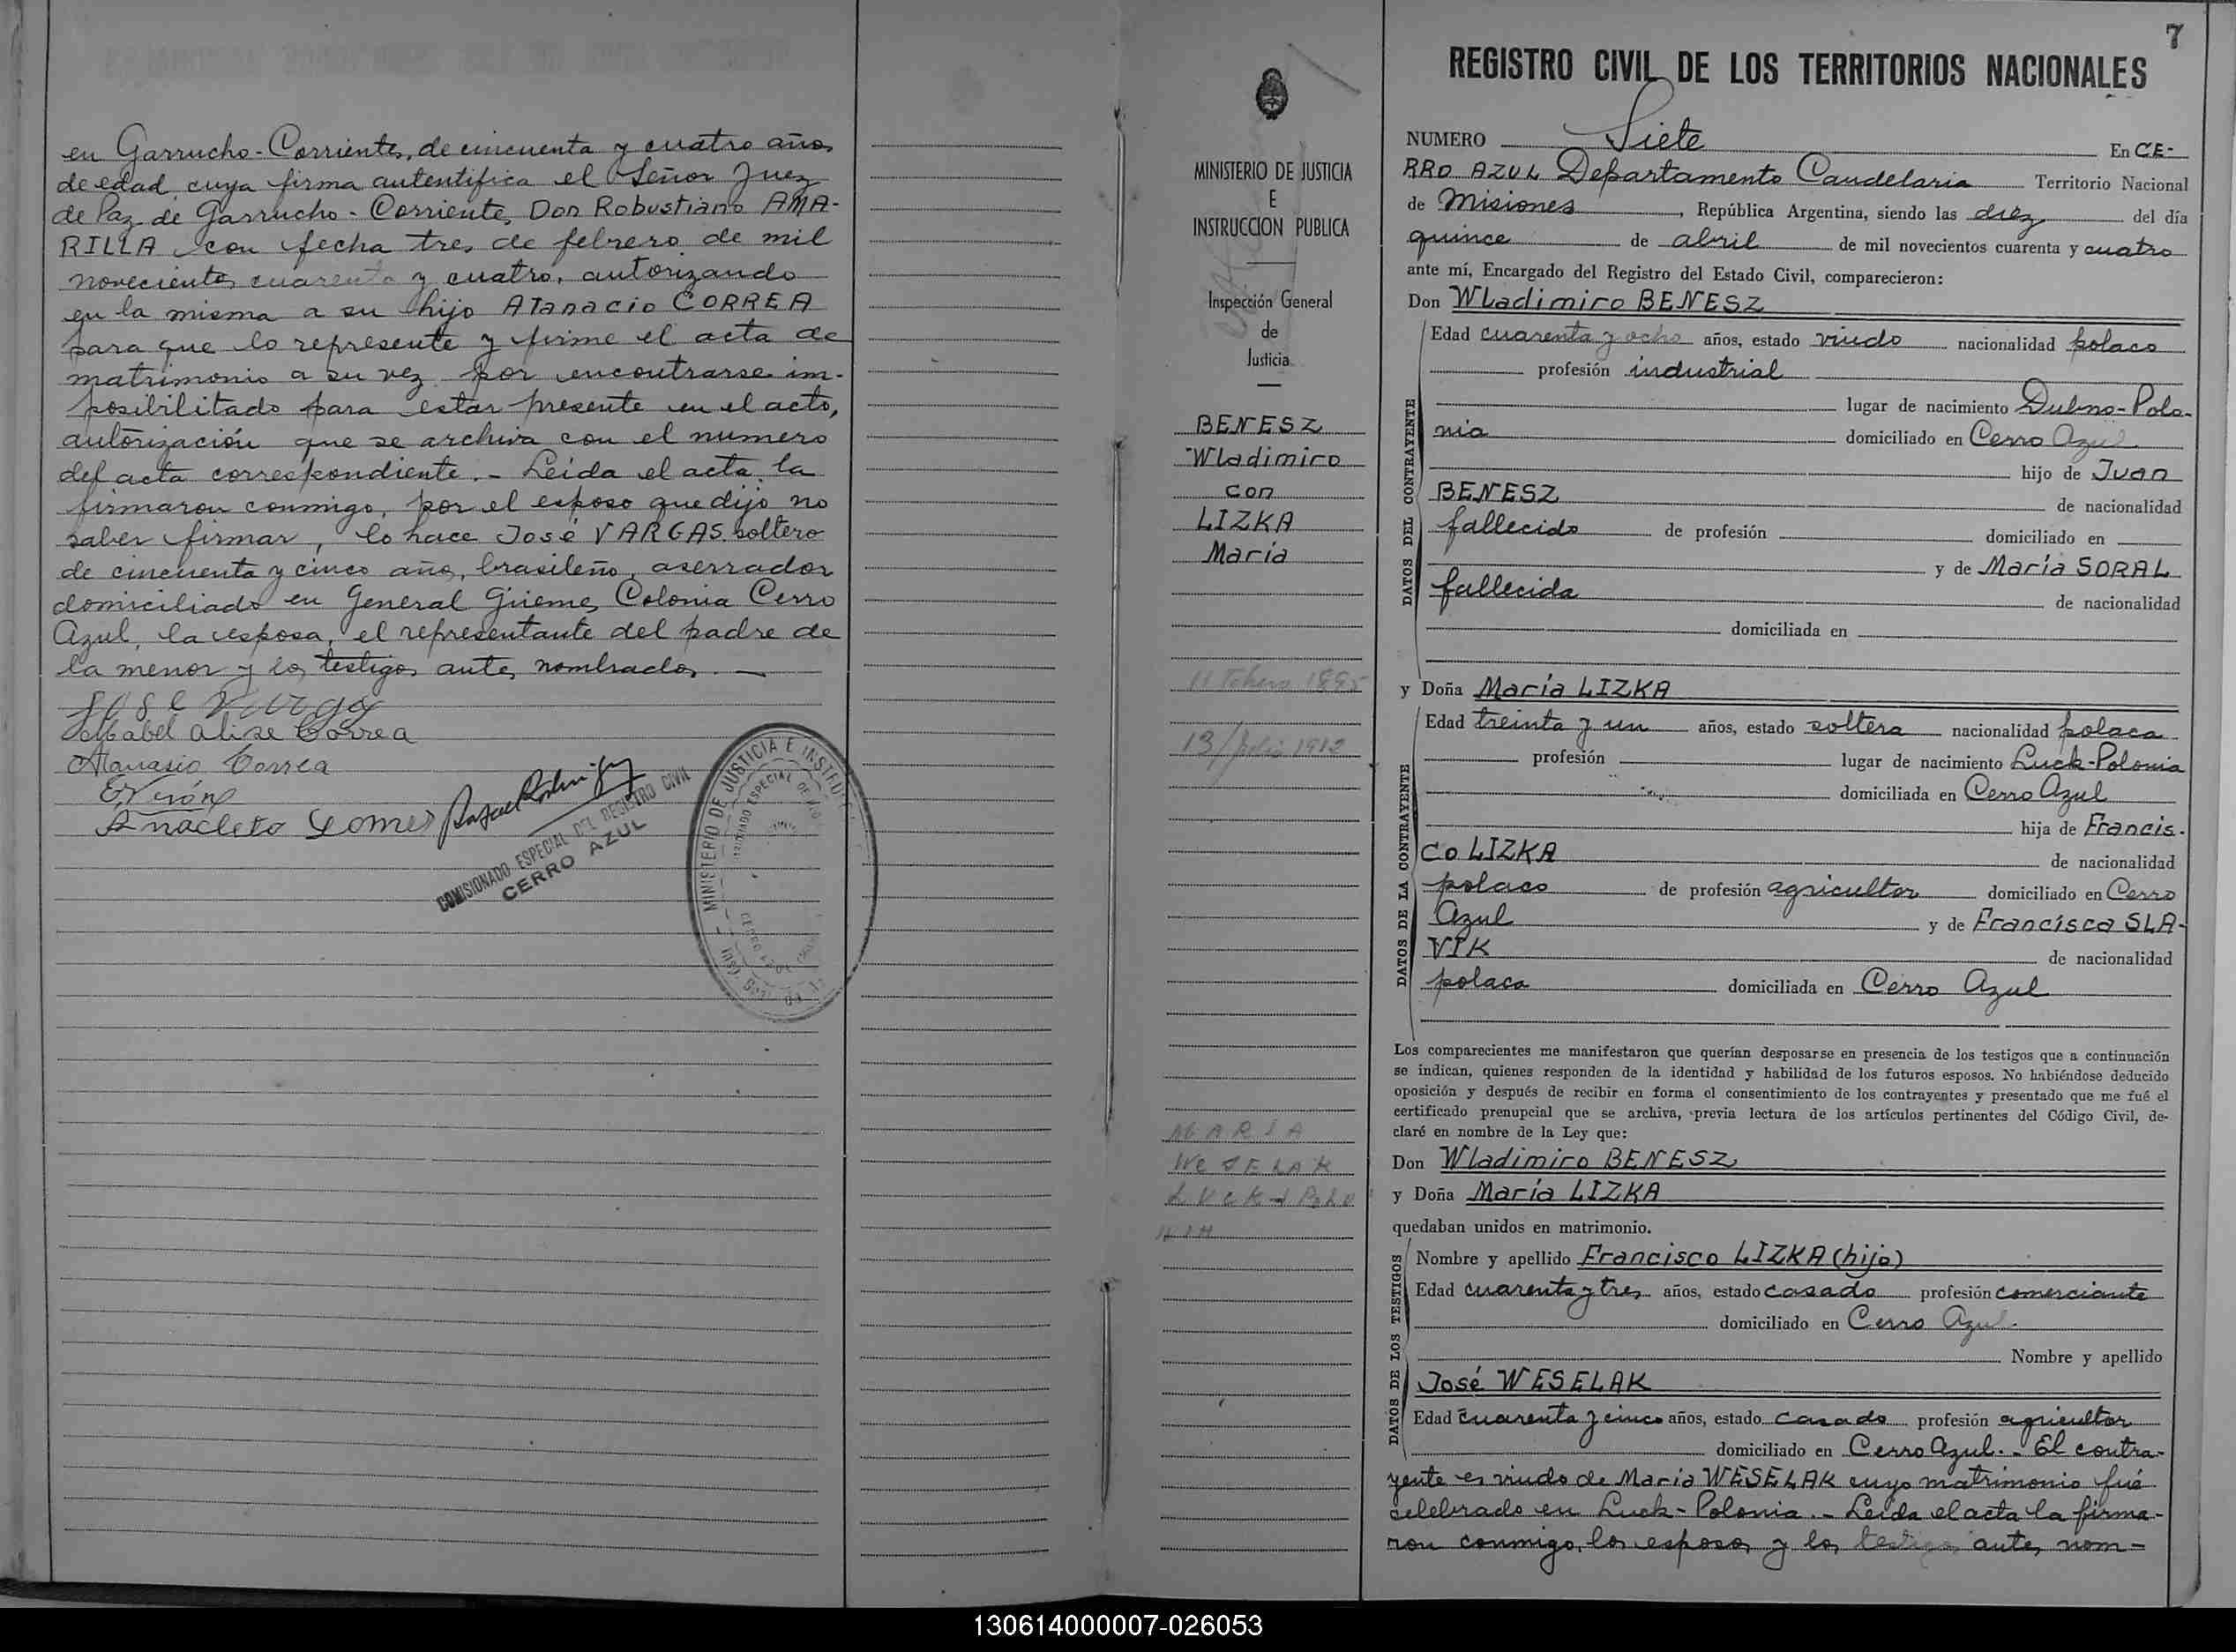 en Garrucho-Corrientes, de cincuenta y cuatro años
de edad cuya firma autentifica el Señor Juez
de Paz de Garrucho-Corrientes, Don Robustiano AMA-
RILLA con fecha tres de febrero de mil
novecientos cuarenta y cuatro, autorizando
en la misma a su hijo Atanacio CORREA
para que lo represente y firme el acta de
matrimonio a su vez por encontrarse im-
posibilitado para estar presente en el acto,
autorización que se archiva con el numero
del acta correspondiente.- Leida el acta, la
firmaron conmigo, por el esposo que dijo no
saber firmar, lo hace José VARGAS soltero
de cincuenta y cinco años, brasileño, aserrador
domiciliado en General Güemes Colonia Cerro
Azul, la esposa, el representante del padre de
la menor y los testigos antes nombrados.—
José Vargas
Mabel Alise Correa
Atanasio Correa
Anacleto Gomes
COMISIONADO ESPECIAL DEL REGISTRO CIVIL
CERRO AZUL
MINISTERIO DE JUSTICIA E
MINISTERIO DE JUSTICIA
E
INSTRUCCION PUBLICA
Inspección General
de
Justicia
BENESZ
Wladimiro
con
LIZKA
María
1895
13/Julio 1912
MARIA
WESELAK
LUCK-POLO
NIA
7
REGISTRO CIVIL DE LOS TERRITORIOS NACIONALES
NUMERO Siete En CE-
RRO AZUL Departamento Candelaria Territorio Nacional
de Misiones, República Argentina, siendo las diez del día
quince de abril de mil novecientos cuarenta y cuatro
ante mí, Encargado del Registro del Estado Civil, comparecieron:
Don Wladimiro BENESZ
DATOS DEL CONTRAYENTE
Edad cuarenta y ocho años, estado viudo nacionalidad polaco
profesión industrial
lugar de nacimiento Dubno-Polo-
nia domiciliado en Cerro Azul
hijo de Juan
BENESZ de nacionalidad
fallecido de profesión domiciliado en
y de María SORAL
fallecida de nacionalidad
domiciliada en
y Doña María LIZKA
DATOS DE LA CONTRAYENTE
Edad treinta y un años, estado soltera nacionalidad polaca
profesión lugar de nacimiento Luck-Polonia
domiciliada en Cerro Azul
hija de Francis-
co LIZKA de nacionalidad
polaco de profesión agricultor domiciliado en Cerro
Azul y de Francisca SLA-
VIK de nacionalidad
polaca domiciliada en Cerro Azul
Los comparecientes me manifestaron que querían desposarse en presencia de los testigos que a continuación
se indican, quienes responden de la identidad y habilidad de los futuros esposos. No habiéndose deducido
oposición y después de recibir en forma el consentimiento de los contrayentes y presentado que me fué el
certificado prenupcial que se archiva, previa lectura de los artículos pertinentes del Código Civil, de-
claré en nombre de la Ley que:
Don Wladimiro BENESZ
y Doña María LIZKA
quedaban unidos en matrimonio.
DATOS DE LOS TESTIGOS
Nombre y apellido Francisco LIZKA (hijo)
Edad cuarenta y tres años, estado casado profesión comerciante
domiciliado en Cerro Azul.
Nombre y apellido
José WESELAK
Edad cuarenta y cinco años, estado casado profesión agricultor
domiciliado en Cerro Azul.- El contra-
yente es viudo de María WESELAK cuyo matrimonio fué
celebrado en Luck-Polonia.- Leida el acta la firma-
ron conmigo, los esposos y los testigos antes nom-
130614000007-026053